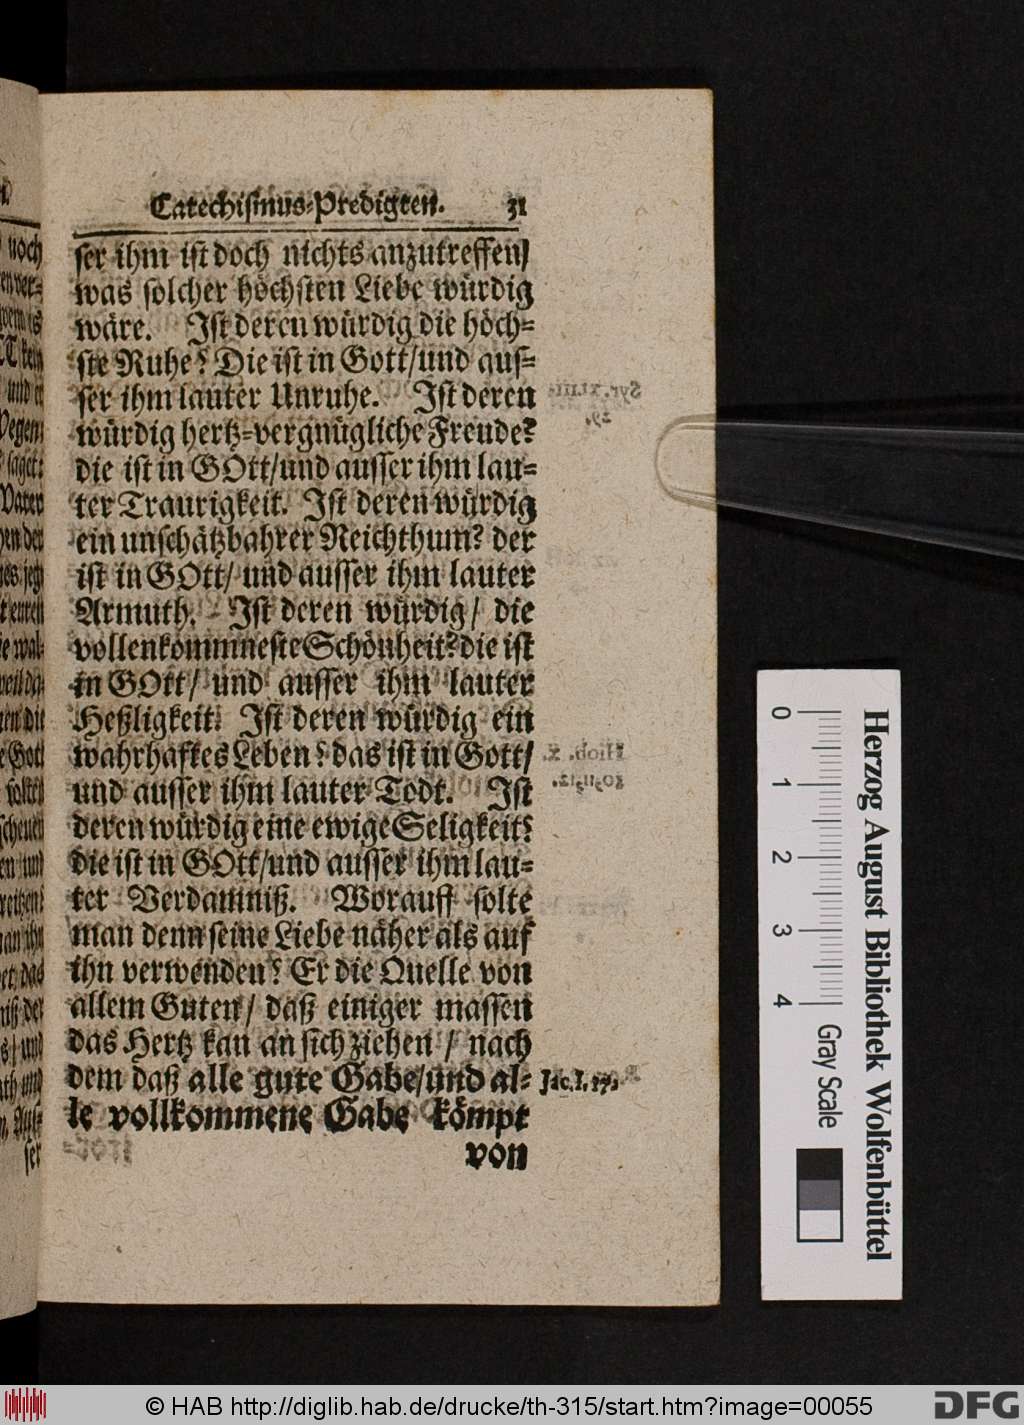 Catechismus-Predigten. 31
ser ihm ist doch nichts anzutreffen/
was solcher höchsten Liebe würdig
wäre. Ist deren würdig die höch=
ste Ruhe? Die ist in Gott/und aus=
ser ihm lauter Unruhe. Ist deren
würdig hertz=vergnügliche Freude?
die ist in GOtt/und ausser ihm lau=
ter Traurigkeit. Ist deren würdig
ein unschätzbahrer Reichthum? der
ist in GOtt/ und ausser ihm lauter
Armuth. Ist deren würdig/ die
vollenkommneste Schönheit? die ist
in GOtt/ und ausser ihm lauter
Heßligkeit. Ist deren würdig ein
wahrhaftes Leben? das ist in Gott/
und ausser ihm lauter Todt. Ist
deren würdig eine ewige Seligkeit?
die ist in GOtt/und ausser ihm lau=
ter Verdamniß. Worauff solte
man denn seine Liebe näher als auf
ihn verwenden? Er die Quelle von
allem Guten/ daß einiger massen
das Hertz kan an sich ziehen / nach
dem daß alle gute Gabe/und al= Jac. I. 17.
le vollkommene Gabe kömpt
von
noch
und
Vater
ser
0 1 2 3 4 Gray Scale
Herzog August Bibliothek Wolfenbüttel
© HAB http://diglib.hab.de/drucke/th-315/start.htm?image=00055
DFG